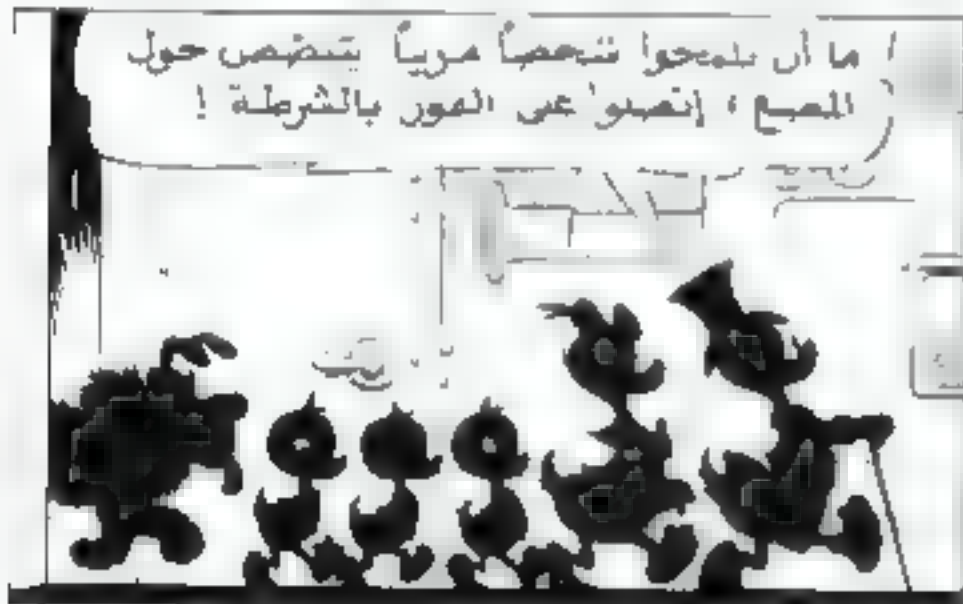 ما أن تلمحوا شخصاً مريباً يتبصّص حول
المصبع ، إتصلوا على الفور بالشرطة !